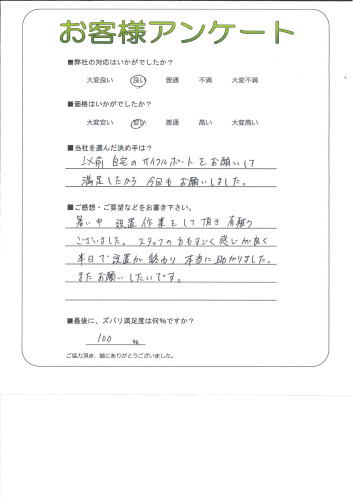 お客様アンケート
■弊社の対応はいかがでしたか？
大変良い 良い 普通 不満 大変不満
■価格はいかがでしたか？
大変安い 安い 普通 高い 大変高い
■当社を選んだ決め手は？
以前 自宅のサイクルポートをお願いして
満足したから 今回も お願いしました。
■ご感想・ご要望などをお書き下さい。
暑い中 設置作業をして頂き 有難う
ございました。スタッフの方もすごく感じが良く
半日で設置が終わり 本当に助かりました。
またお願いしたいです。
■最後に、ズバリ満足度は何%ですか？
100 %
ご協力頂き、誠にありがとうございました。